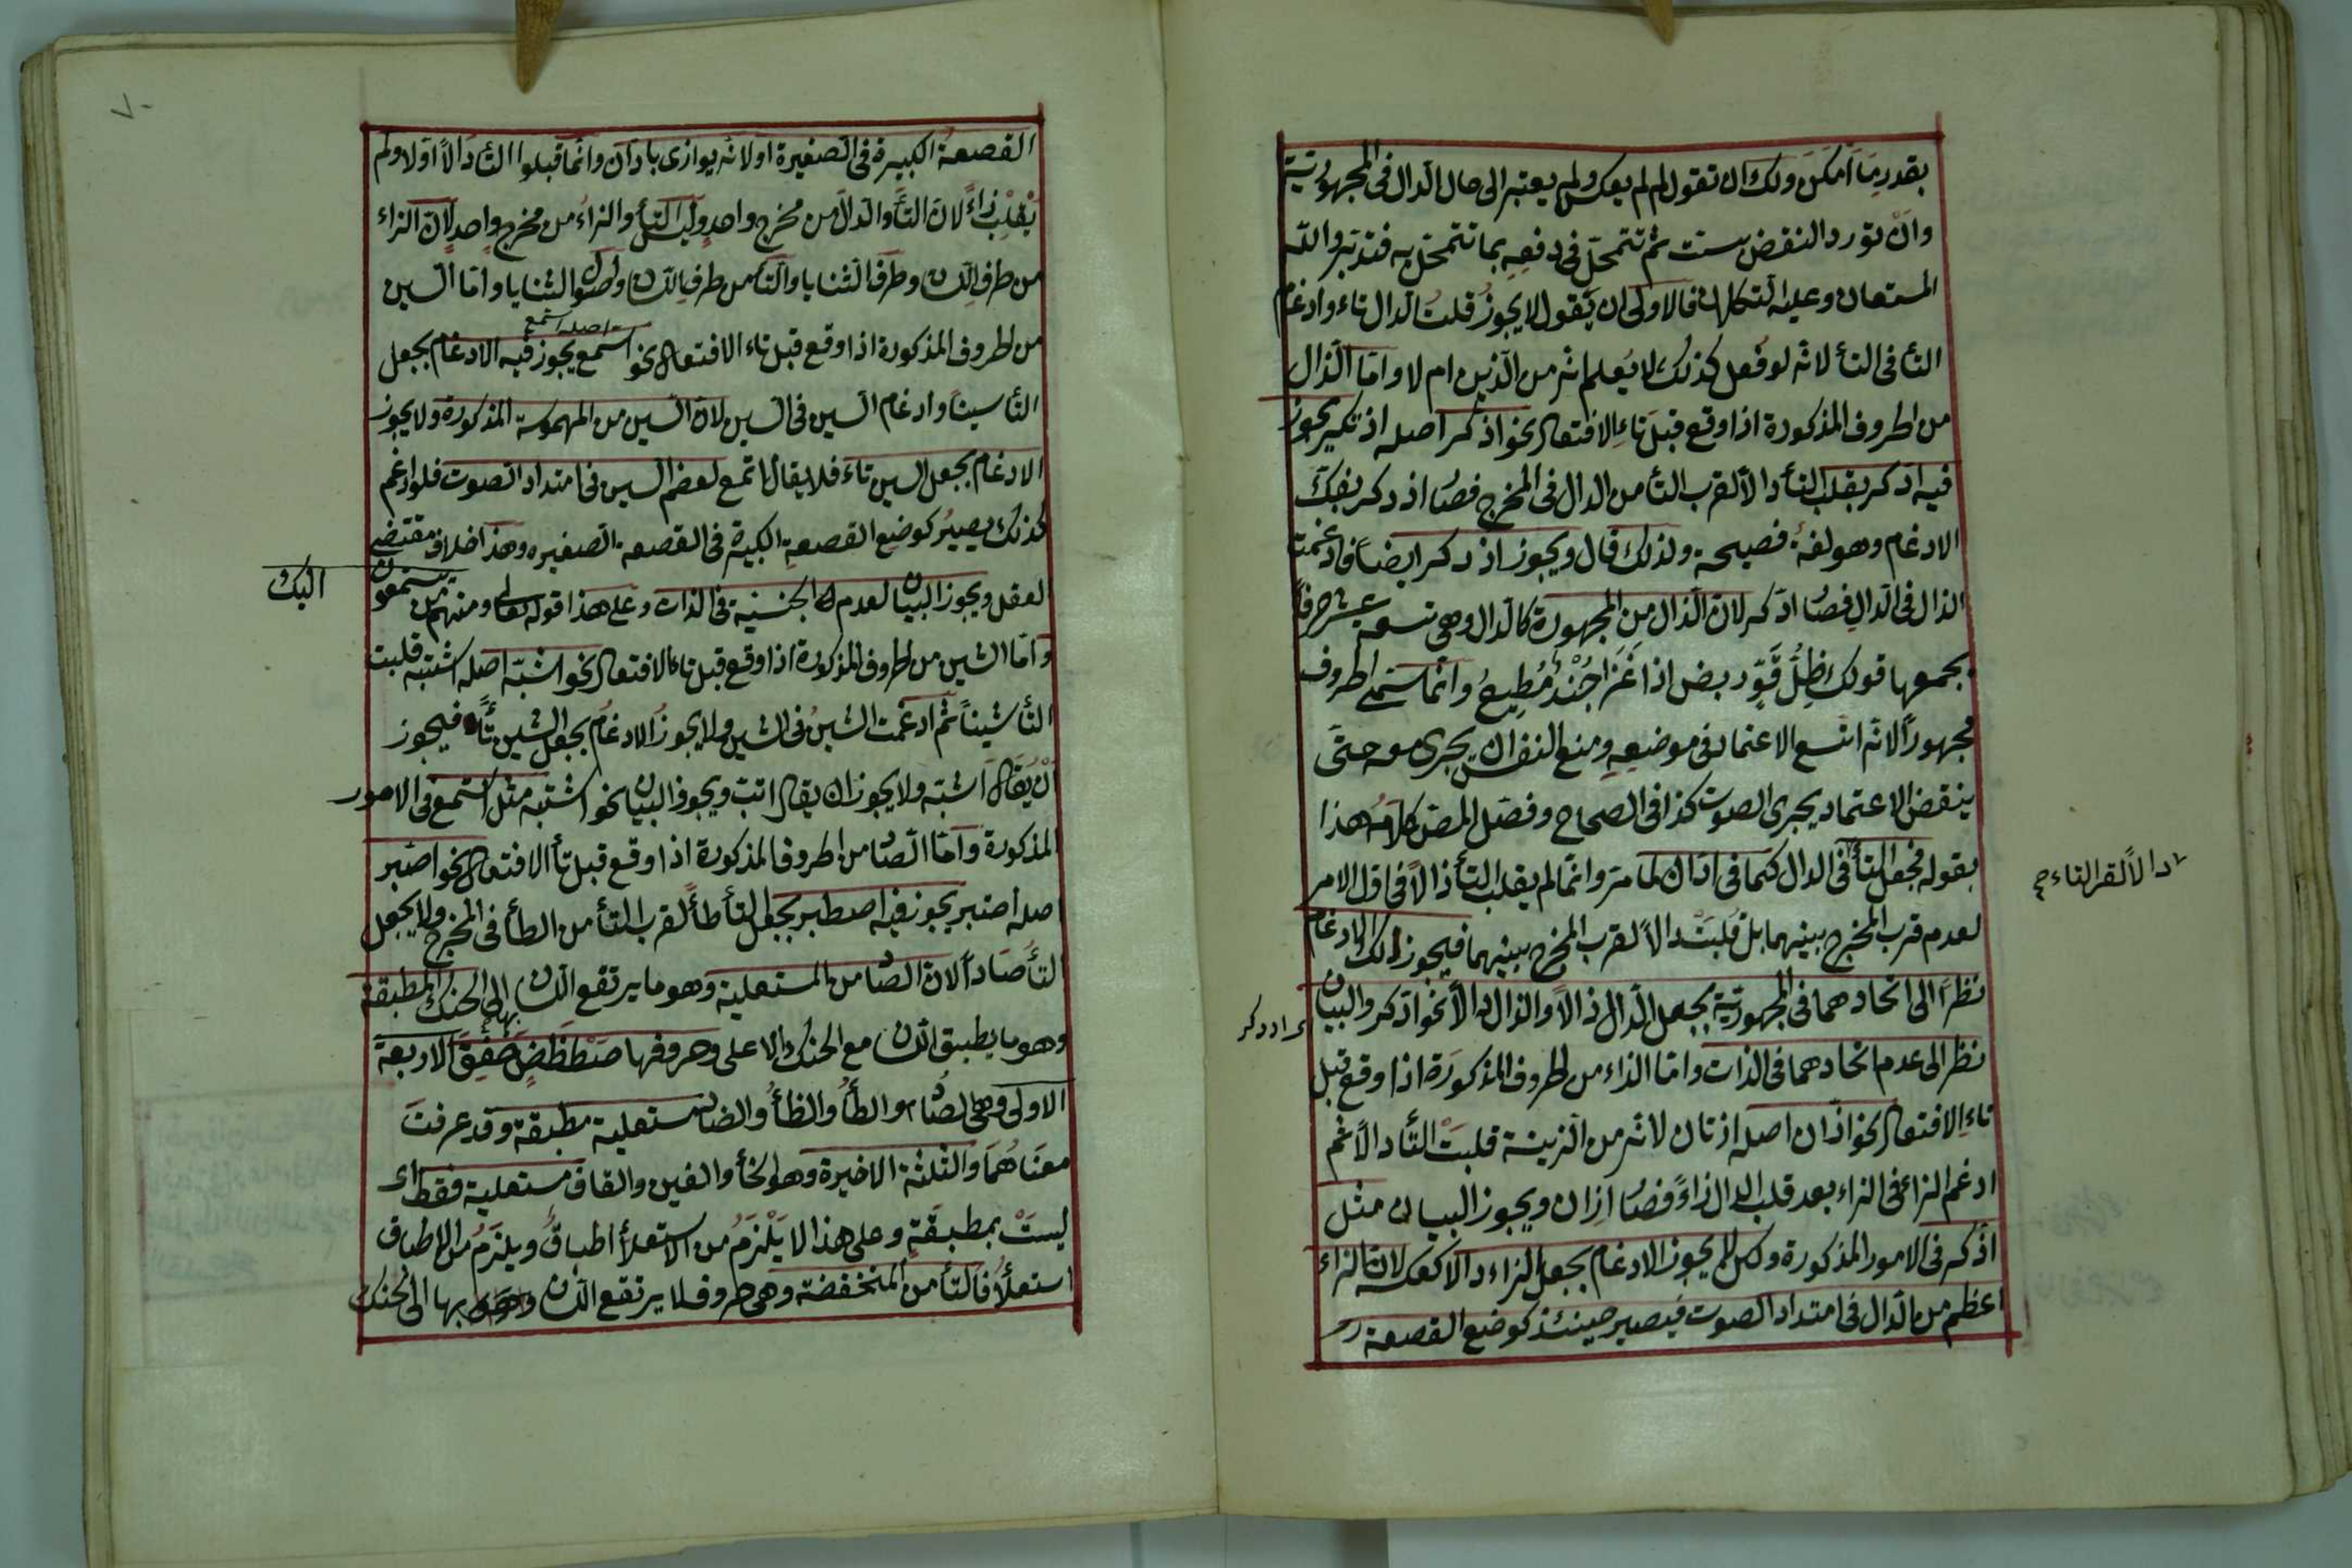 بقدر ما امكن ولك ان تقول لم لم يعكس ولم يعتبر الى حال الدال فى المجهورية
وان تورد النقض ثم تتمحل فى دفعه بما تتمحل به فتدبر والله
المستعان وعليه التكلان فالاولى ان يقول لا يجوز قلت الدال تاء وادغام
التأ فى التأ لانه لو فعل كذلك لا يعلم انه من الدين ام لا واما الذال
من الحروف المذكورة اذا وقع قبل تاء الافتعال نحو اذكر اصله اذتكر يجوز
فيه ادكر بقلب التأ دالا لقرب التأ من الدال فى المخرج فصار اذدكر بفك
الادغام وهو لغة فصيحة ولذلك قال ويجوز اذدكر ايضا فادغمت
الذال فى الدال فصار ادكر لان الذال من المجهورة كالدال وهى تسعة عشر حرفا
يجمعها قولك ظل قو ربض اذا غزا جند مطيع وانما سمى الحروف
مجهورا لانه اتسع الاعتماد فى موضعه ومنع النفس ان يجرى معه حتى
ينقض الاعتماد يجرى الصوت كذا فى الصحاح وفصل المص كلامه هذا
بقوله فجعل التأ فى الدال كما فى ادان لما مر وانما لم يقلب التأ ذالا فى اول الامر
لعدم قرب المخرج بينهما بل قلبت دالا لقرب المخرج بينهما فيجوز لك الادغام
نظرا الى اتحادهما فى المجهورية بجعل الدال ذالا والذال دالا نحو اذكر والبيان
نظرا الى عدم اتحادهما فى الذات واما الزاء من الحروف المذكورة اذا وقع قبل
تاء الافتعال نحو ازان اصله ازتان لانه من الزينة قلبت التأ دالا ثم
ادغم الزاء فى الزاء بعد قلب الدال زاء فصار ازان ويجوز البيان مثل
اذكر فى الامور المذكورة ولكن لم يجوز الادغام بجعل الزاء دالا كعكسه لان الزاء
اعظم من الدال فى امتداد الصوت فيصير حينئذ كوضع القصعة
دالا لقرب التاء
اذدكر
٧٠
القصعة الكبيرة فى الصغيرة او لانه يوازى بادان وانما قبلوا التأ دالا اولا ولم
يقلب زاء لان التأ والدال من مخرج واحد وليس التأ والزاء من مخرج واحد لان الزاء
من طرف اللسان وطرف الثنايا والتأ من طرف اللسان واصول الثنايا واما السين
من الحروف المذكورة اذا وقع قبل تاء الافتعال نحو اسمع يجوز فيه الادغام بجعل
اصله استمع
التأ سينا وادغام السين فى السين لان السين من المهموسة المذكورة ولا يجوز
الادغام بجعل السين تاء فلا يقال اتمع لعظم السين فى امتداد الصوت فلو ادغم
كذلك يصير كوضع القصعة الكبيرة فى القصعة الصغيره وهذا خلاف مقتضى
العقل ويجوز البيان لعدم الجنسية فى الذات وعلى هذا قوله تعالى ومنهم من يستمعون
اليك
واما الشين من الحروف المذكورة اذا وقع قبل تاء الافتعال نحو اشبه اصله اشتبه قلبت
التأ شينا ثم ادغمت الشين فى الشين ولا يجوز الادغام بجعل الشين تأ فيجوز
ان يقال اشبه ولا يجوز ان يقال اتبه ويجوز البيان نحو اشتبه مثل استمع فى الامور
المذكورة واما الصاد من الحروف المذكورة اذا وقع قبل تأ الافتعال نحو اصبر
اصله اصتبر يجوز فيه اصطبر بجعل التأ طأ لقرب التأ من الطأ فى المخرج ولا يجعل
التأ صادا لان الصاد من المستعلية وهو ما يرتفع اللسان بها الى الحنك المطبقة
وهو ما يطبق اللسان مع الحنك الاعلى وحروفها صطظض خغق الاربعة
الاولى وهى الصاد والطأ والظأ والضاد مستعلية مطبقة وقد عرفت
معناهما والثلثة الاخيرة وهو الخأ والغين والقاف مستعلية فقط اى
ليست بمطبقة وعلى هذا لا يلزم من الاستعلأ اطباق ويلزم من الاطباق
استعلأ فالتأ من المنخفضة وهى حروف لا يرتفع اللسان بها الى الحنك